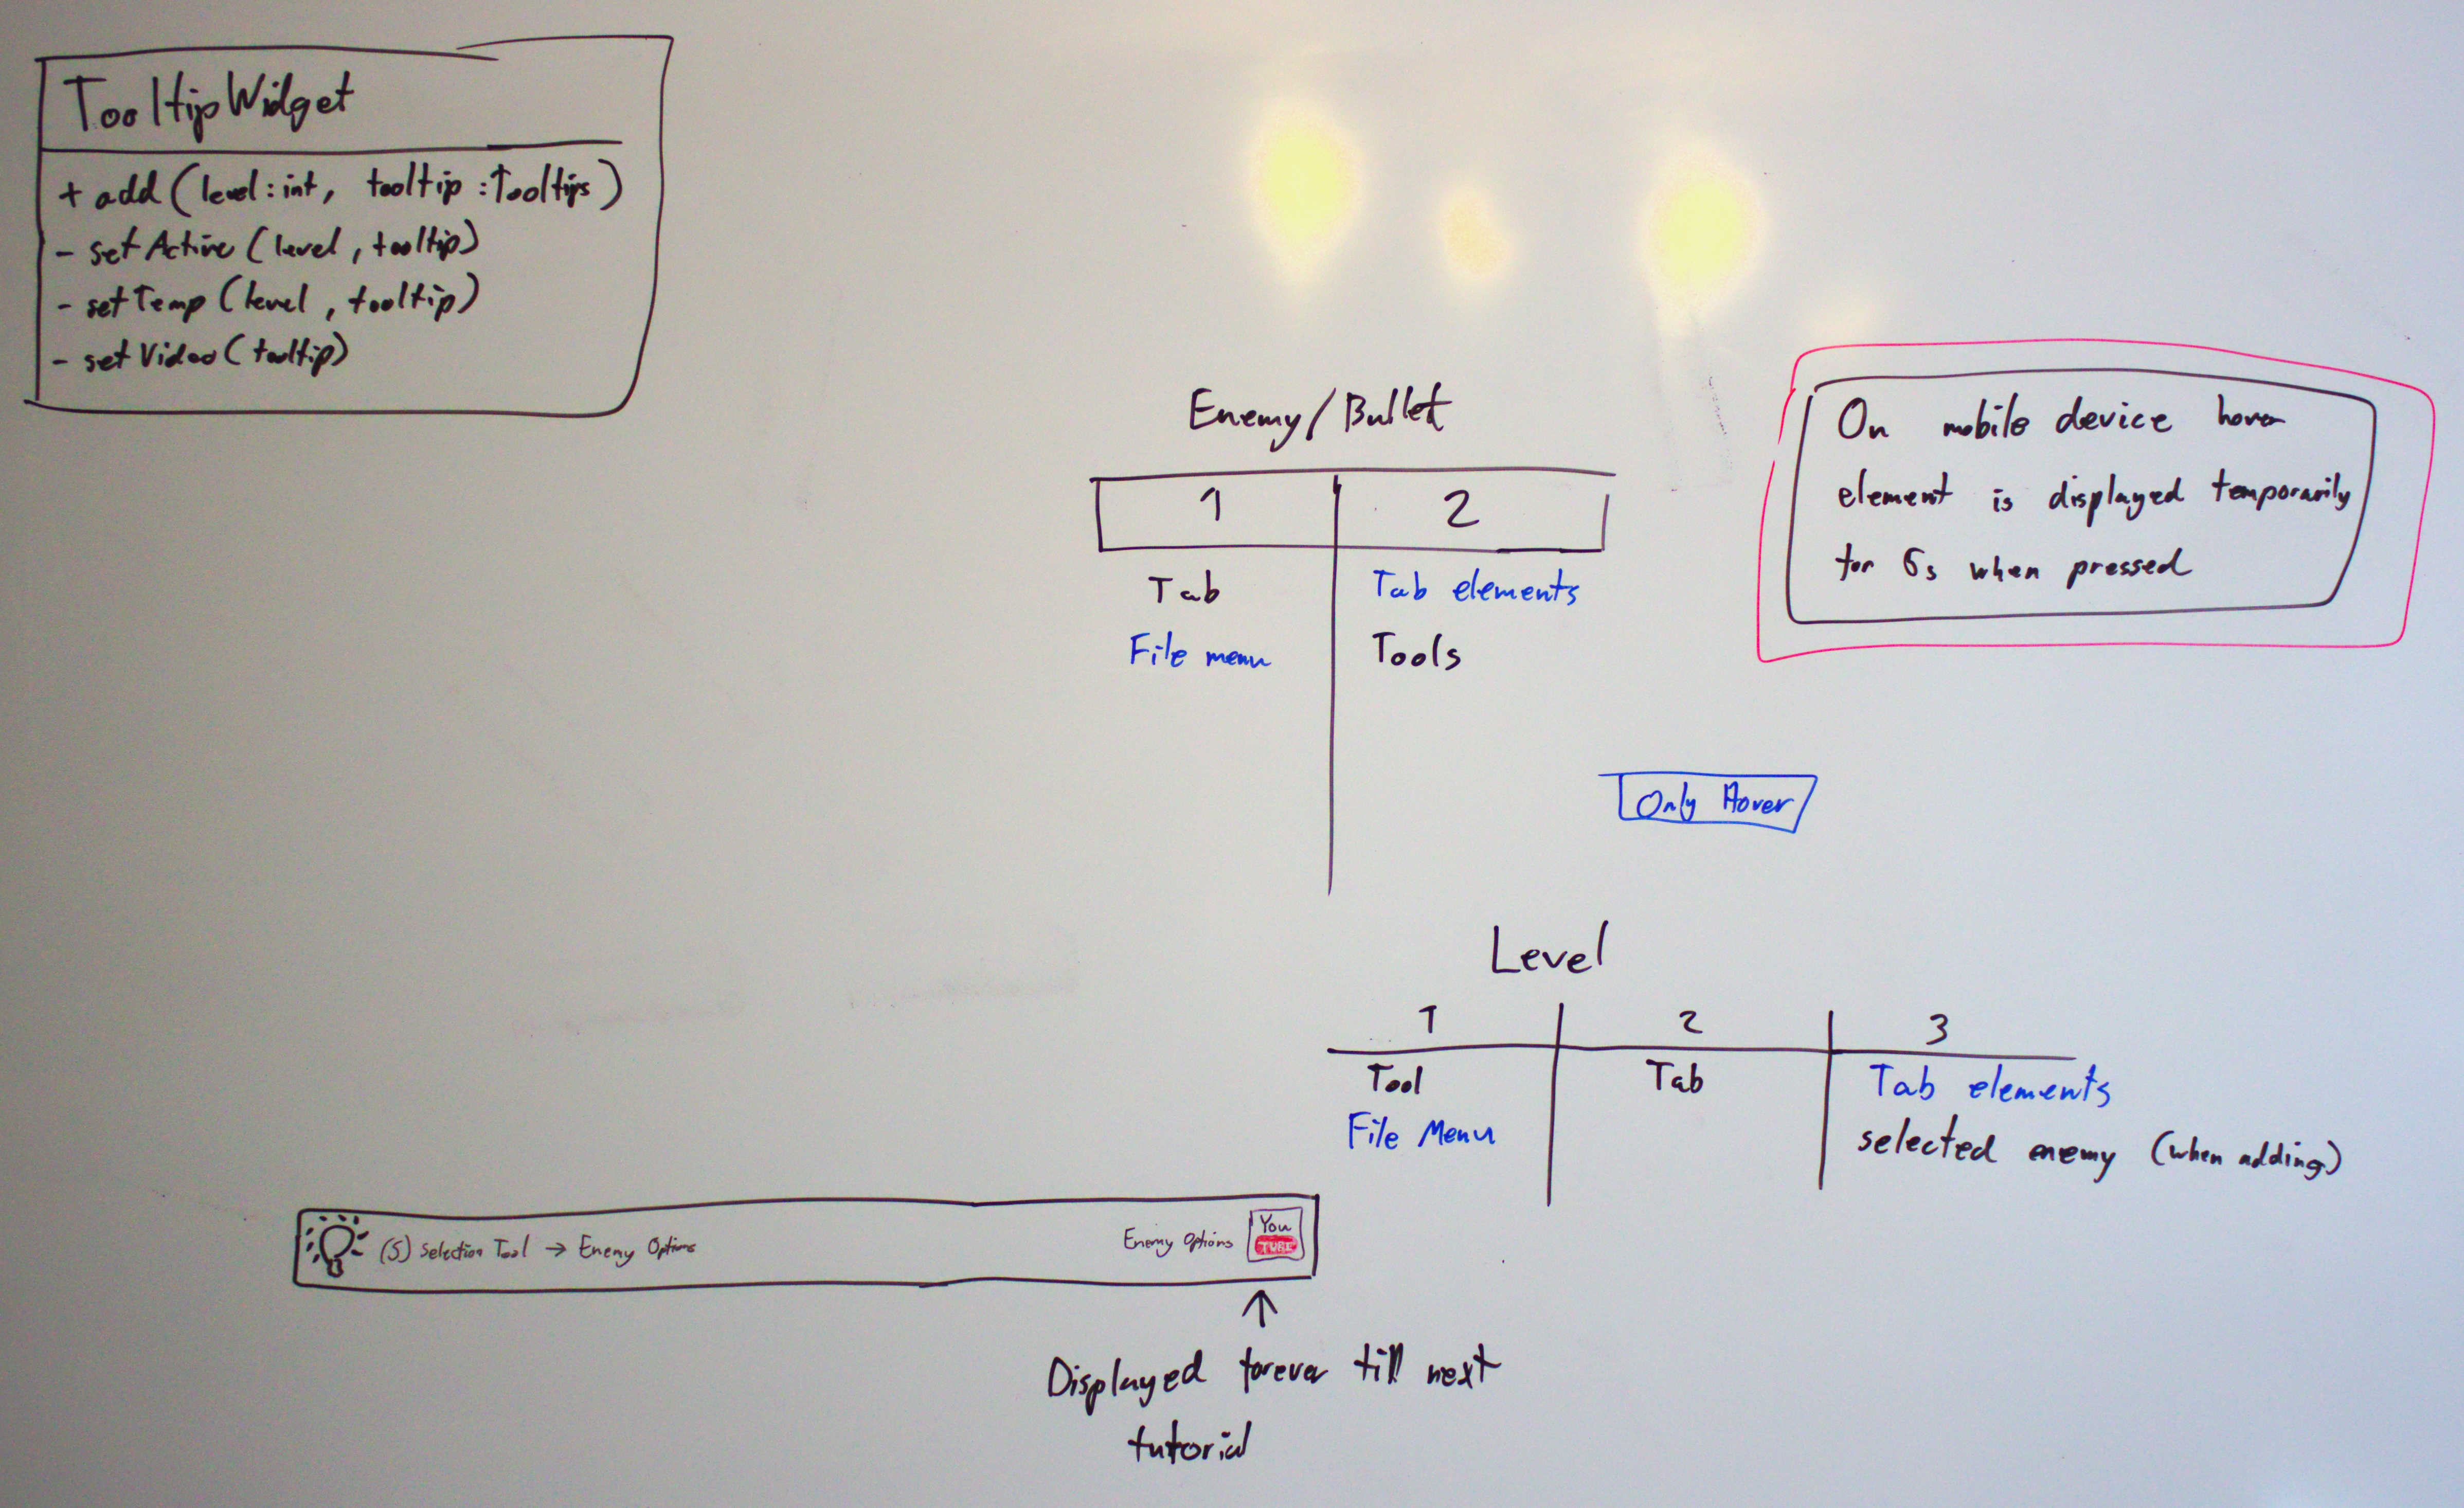 TooltipWidget
+ add (level: int, tooltip: Tooltips)
- setActive (level, tooltip)
- setTemp (level, tooltip)
- setVideo (tooltip)
Enemy/Bullet
1 2
Tab Tab elements
File menu Tools
On mobile device hover
element is displayed temporarily
for 6s when pressed
Only Hover
Level
1 2 3
Tool Tab Tab elements
File Menu selected enemy (when adding)
(S) Selection Tool → Enemy Options Enemy Options You
TUBE
Displayed forever till next
tutorial